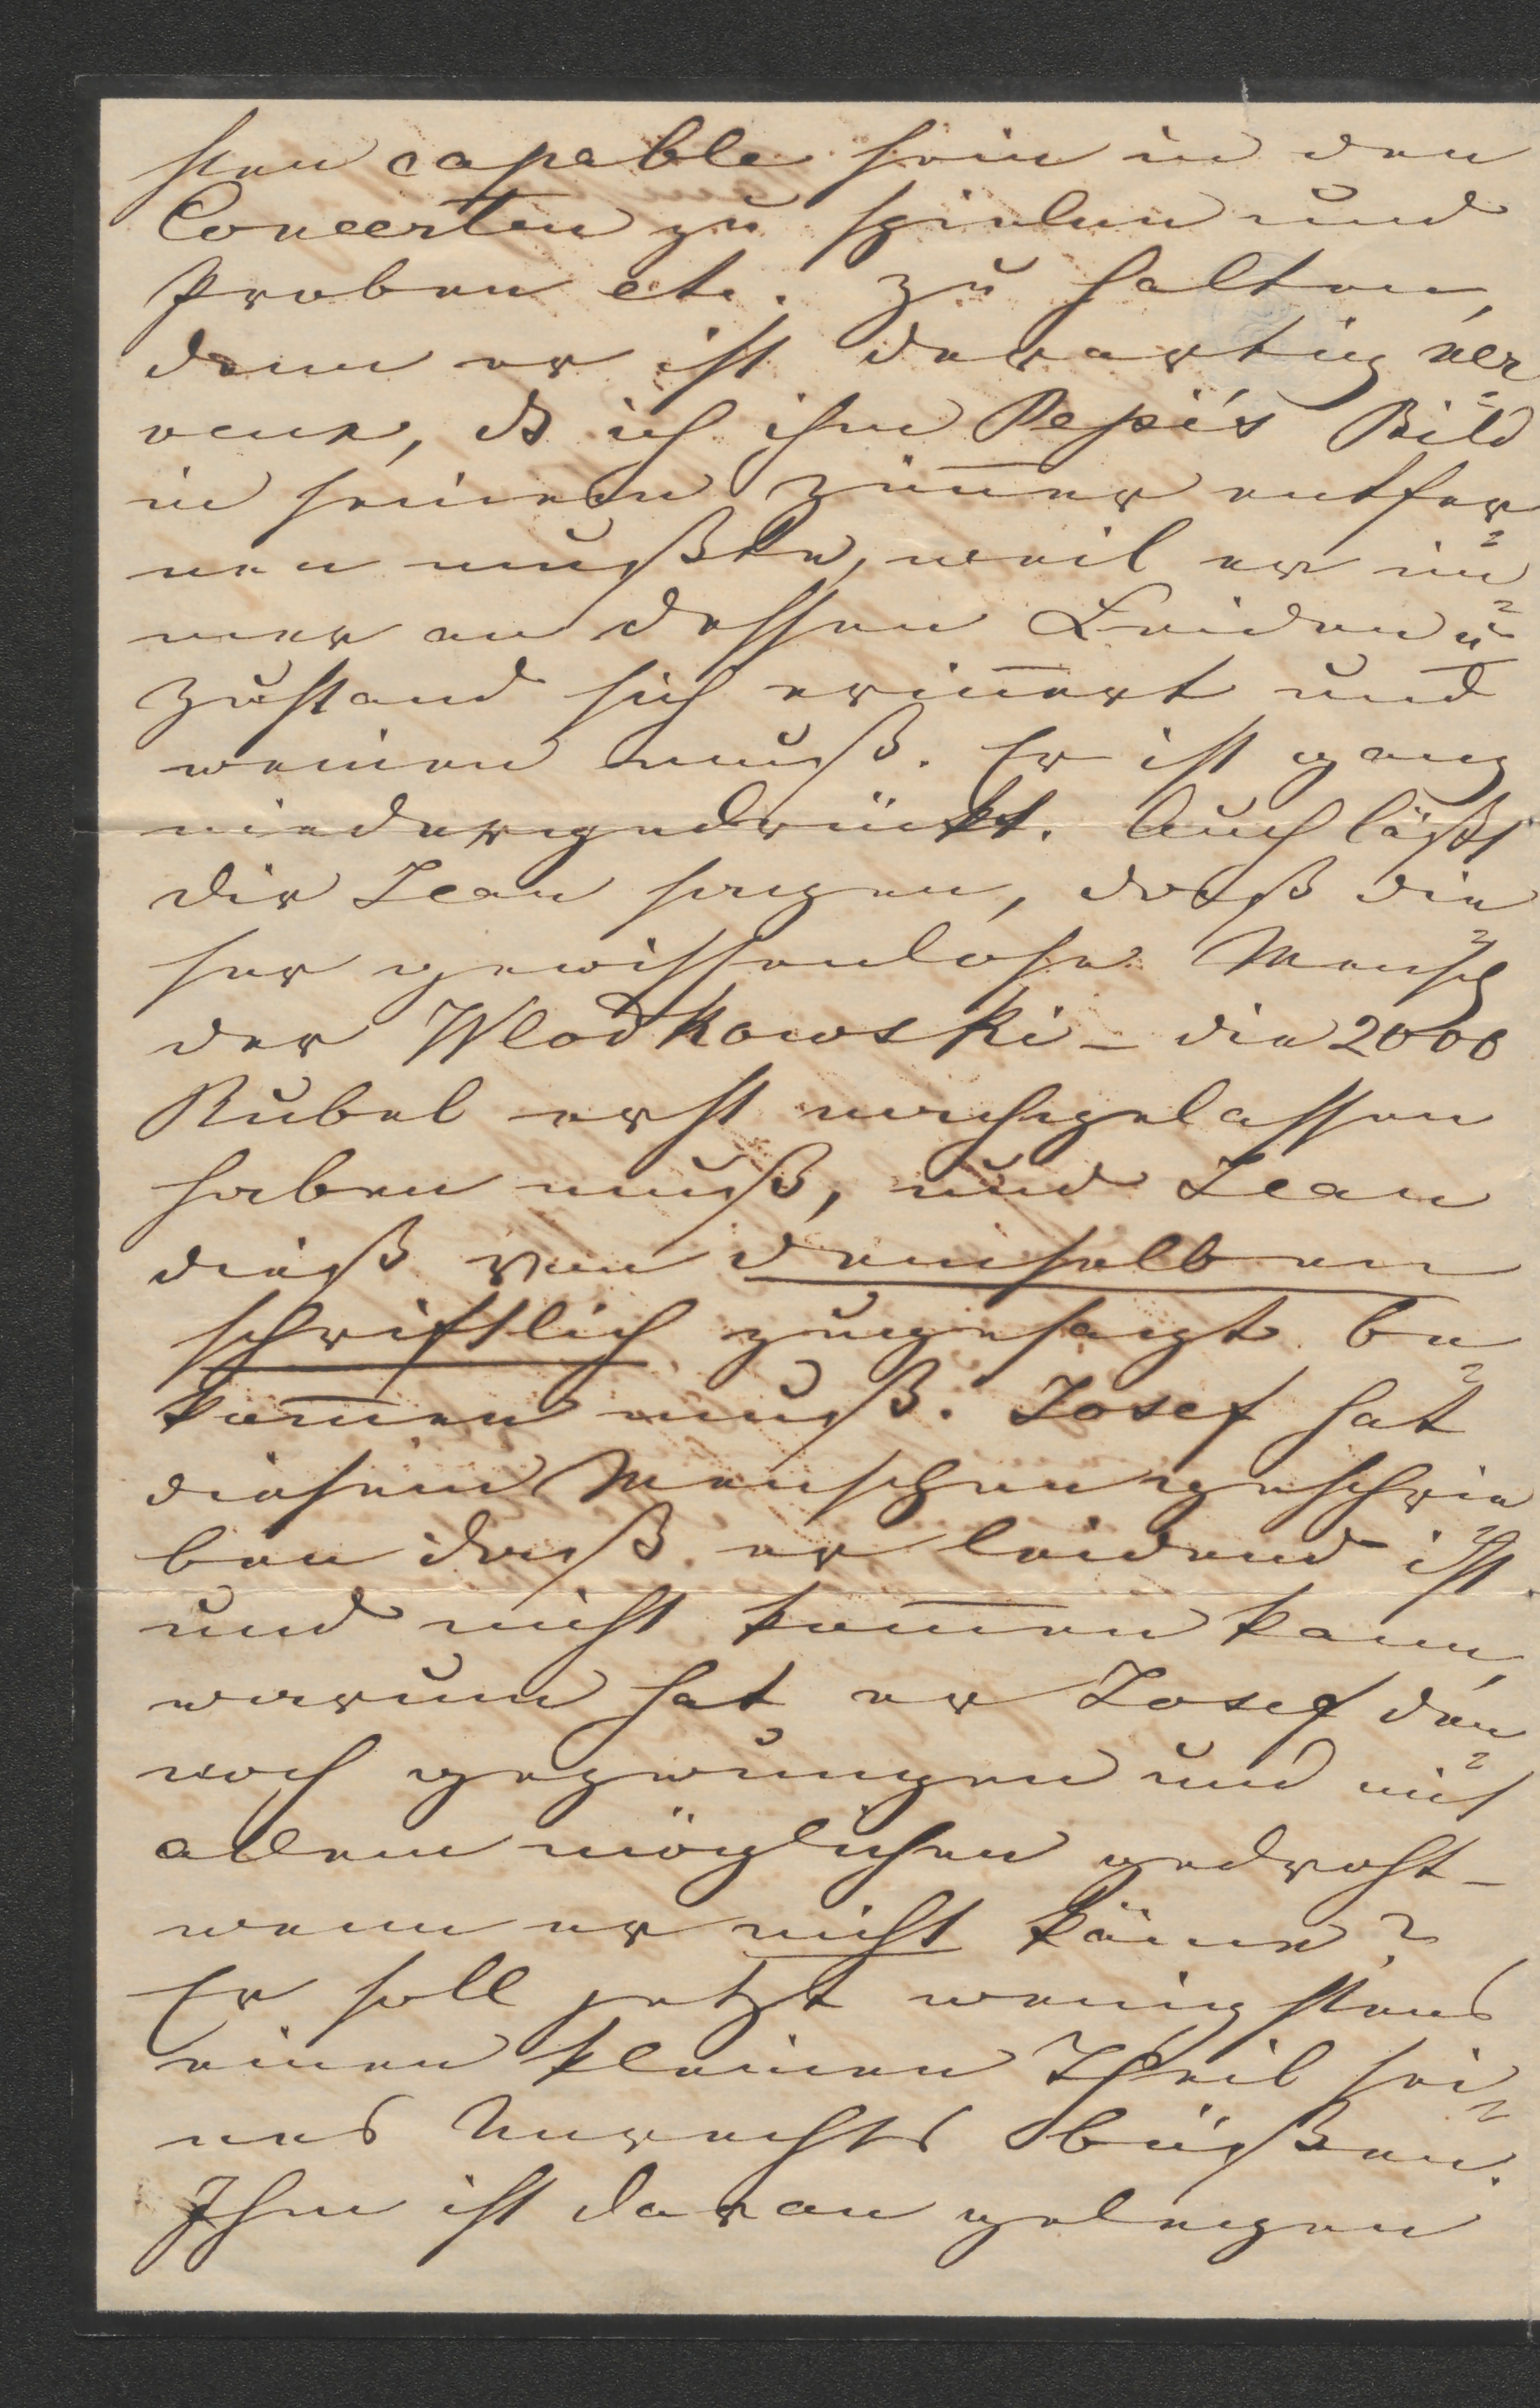 sten capable sein in den
Concerten zu spielen und
Proben etc. zu halten,
denn er ist derartig ner=
veus, dß ich ihm Pepi's Bild
in seinem Zim̅er entfer=
nen mußte, weil er im=
mer an dessen Leiden u
Zustand sich erin̅ert und
weinen muß. Er ist ganz
niedergedrückt. Auch läßt
dir Jean sagen, daß die=
ser gewissenlose Mensch
der Wlodkowski – die 2000
Rubel erst nachgelassen
haben muß, und Jean
dieß von demselben
schriftlich zugesagt be=
kom̅en muß. Josef hat
diesem Menschen geschrie=
ben daß er leidend ist
und nicht kom̅en kann,
warum hat er Josef den=
noch gezwungen und mit
allem möglichen gedroht –
wenn er nicht käme?
Er soll jetzt wenigstens
einen kleinen Theil sei=
nes Unrechts büßen.
Ihm ist daran gelegen